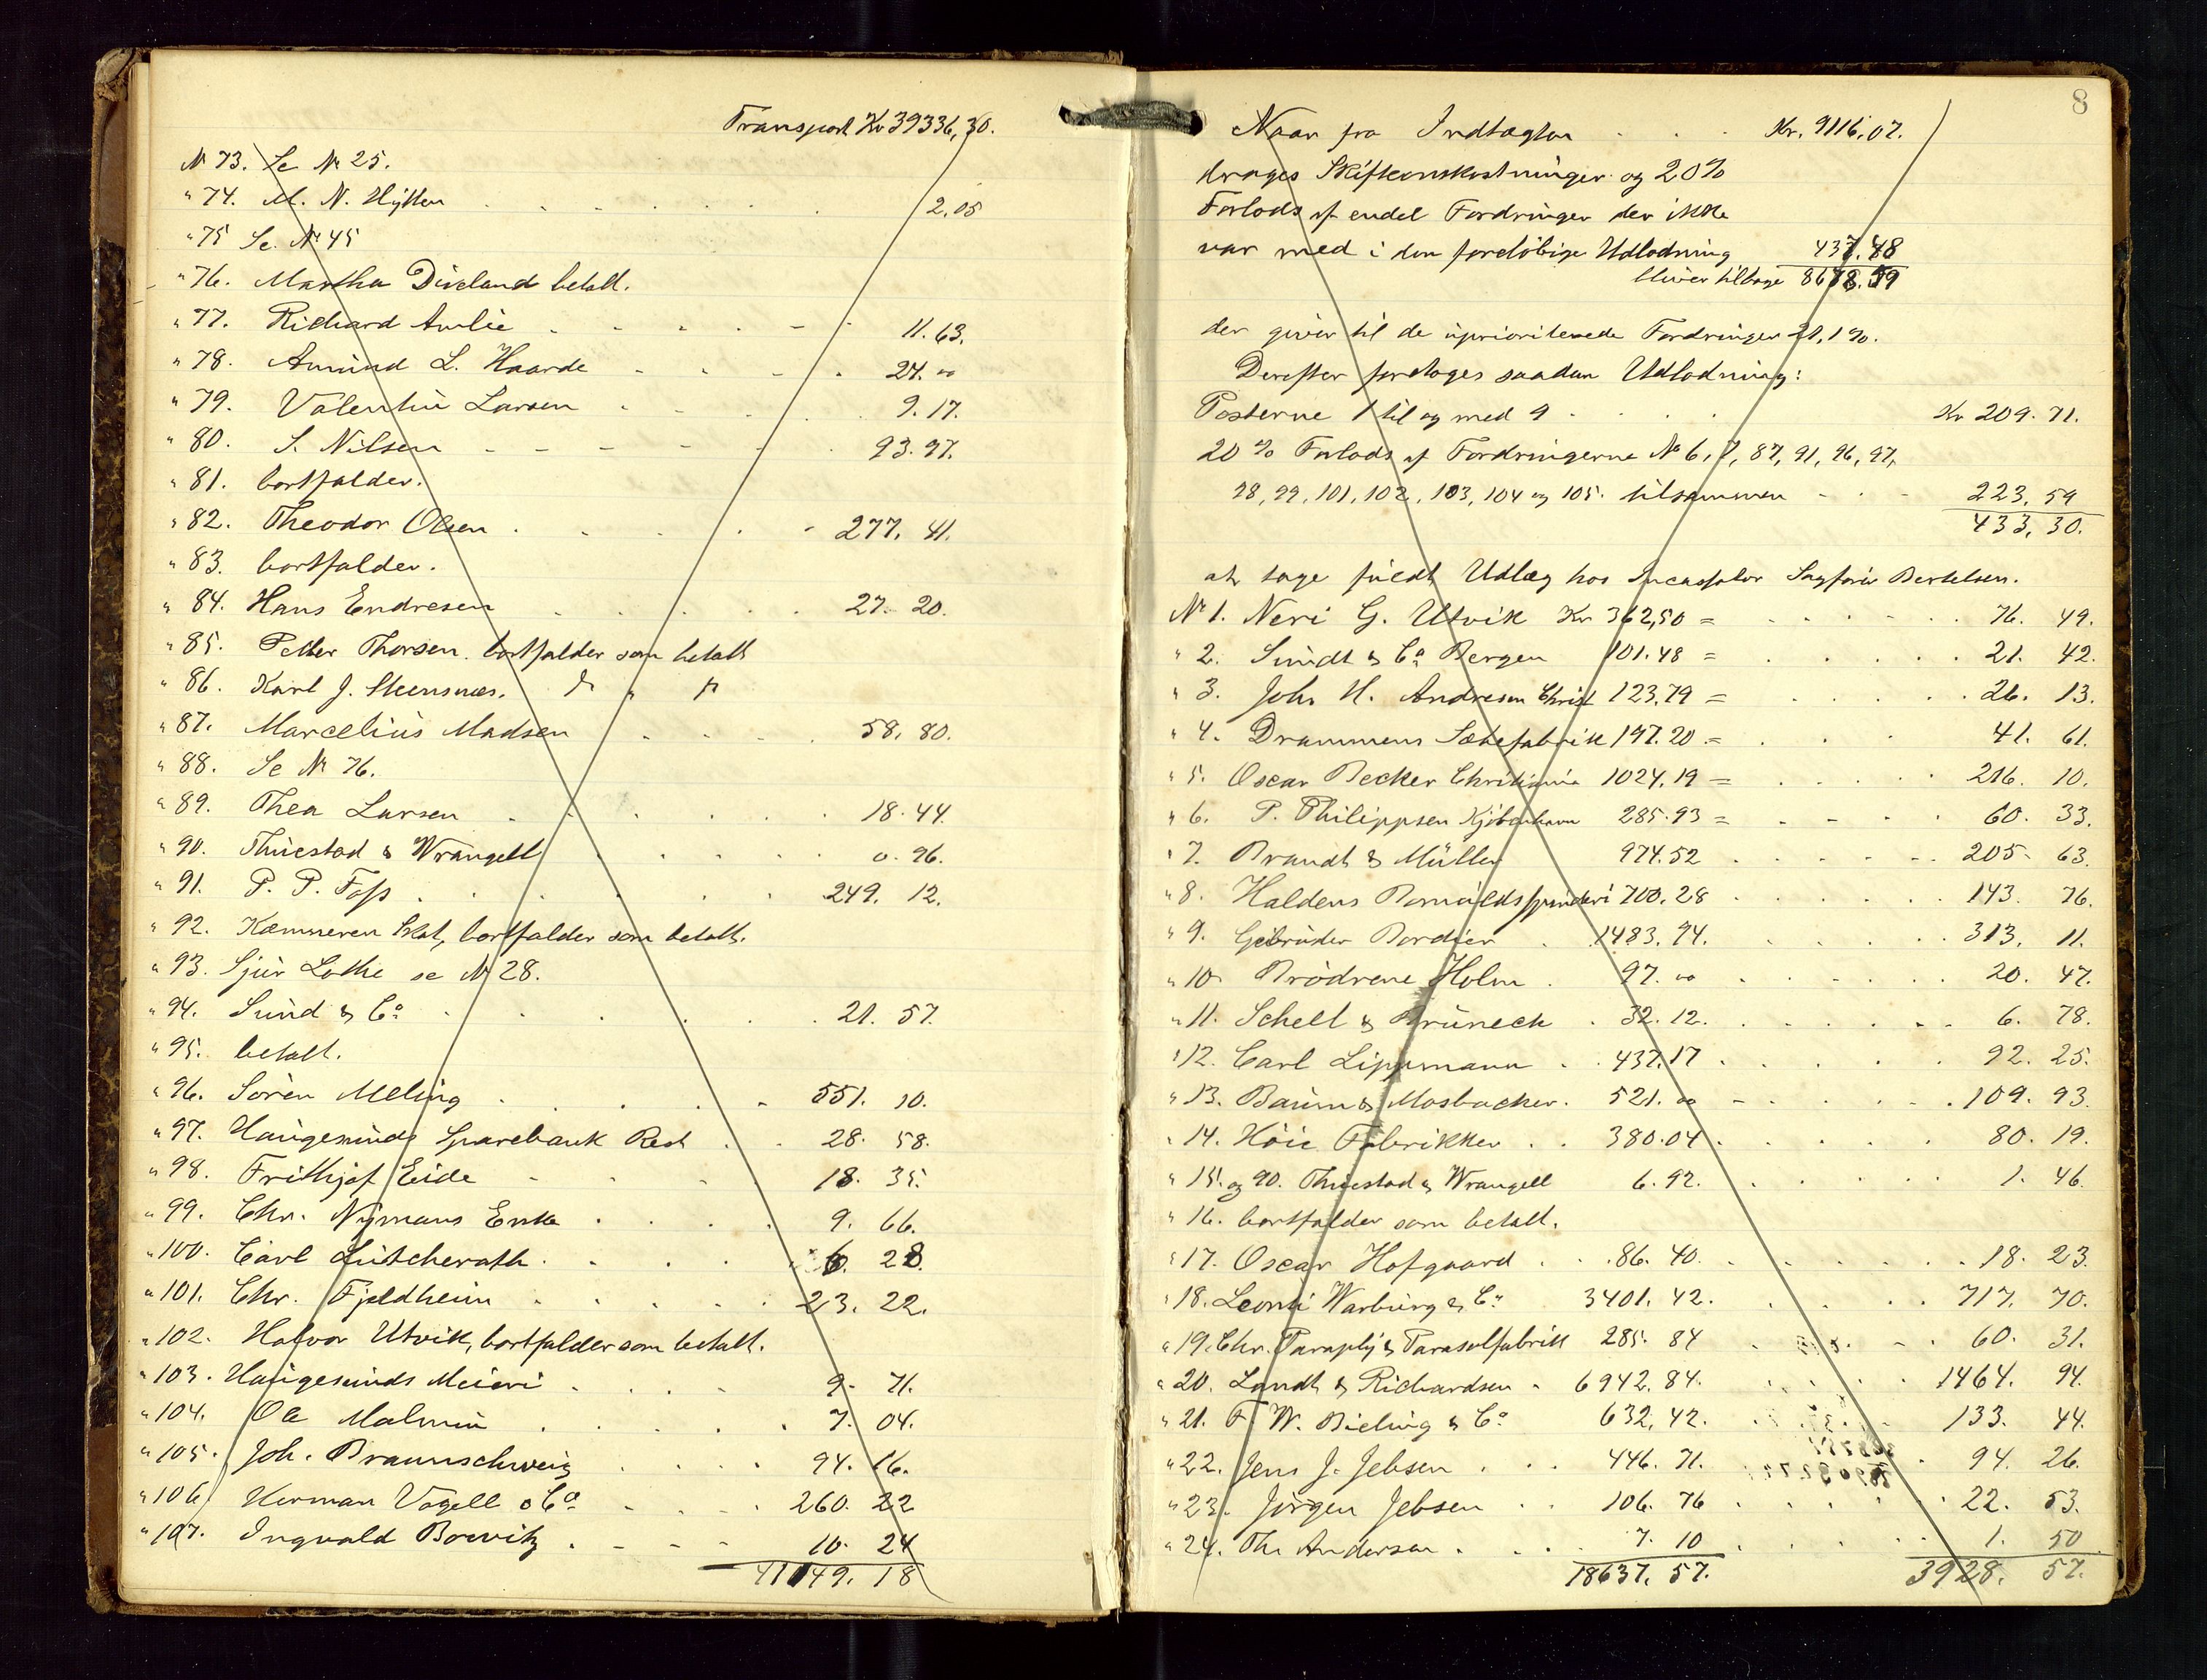 Transport Kr 39336,30.
№ 73. Se № 25.
" 74. M. N. Hytten . . . . 2,05
" 75 Se. № 45
" 76. Martha Diveland betalt.
" 77. Richard Amlie . . . . 11.63.
" 78. Amund L. Haarde . . . . 24. 00
" 79. Valentin Larsen . . . . 9.17.
" 80. S. Nilsen . . . . 93.97.
" 81. bortfalder.
" 82. Theodor Olsen . . . . 277. 41.
" 83. bortfalder.
" 84. Hans Endresen . . . . 27. 20.
" 85. Petter Thorsen. bortfalder som betalt
" 86. Karl J. Steensnæs.
" 87. Marcelius Madsen . . . . 58. 80.
" 88. Se № 76.
" 89. Thea Larsen . . . . 18.44.
" 90. Thuestad & Wrangell . . . . 0.96.
" 91. P. P. Foss . . . . 249. 12.
" 92. Kæmneren Skat, bortfalder som betalt.
" 93. Sjur Lothe se № 28.
" 94. Sund & Co . . . . 21. 57.
" 95. betalt.
" 96. Sören Meling . . . . 551. 10.
" 97. Haugesunds Sparebank Rest . . 28. 58.
" 98. Frithjof Eide . . . . 18. 35.
" 99. Chr. Nymans Enke . . . . 9. 66.
" 100. Carl Lütcherath . . . . 6. 28.
" 101. Chr. Fjeldheim . . . . 23. 22.
" 102. Halvor Utvik, bortfalder som betalt.
" 103. Haugesunds Meieri . . . . 9. 71.
" 104. Ole Malmin . . . . 7. 04.
" 105. Joh. Braunschweig . . . . 94. 16.
" 106. Herman Vogell & Co . . . . 260. 22
" 107. Ingvald Bowitz . . . . 10. 24
41149. 18
8
Naar fra Indtægten . . . Kr. 9116.07.
drages Skifteomkostninger og 20%
Forlods af endel Fordringer der ikke
var med i den foreløbige Udlodning 437.48
bliver tilbage 8678.59
der giver til de uprioriterede Fordringer 21,1%.
Derefter foretages saadan Udlodning:
Posterne 1 til og med 9 . . . . Kr 209. 71.
20% Forlods af Fordringerne № 6, 7, 87, 91, 96, 97,
98, 99, 101, 102, 103, 104 og 105. tilsammen . . . 223. 59
433. 30.
at tage fuldt Udlæg hos Incassator Sagfører Bertelsen.
№ 1. Neri G. Utvik Kr 362,50 = . . . . 76. 49.
" 2. Sundt & Co Bergen 101.48 = . . . . 21. 42.
" 3. Joh. H. Andresen Christ 123,79 = . . . . 26. 13.
" 4. Drammens Sæbefabrik 197.20 = . . . 41. 61.
" 5. Oscar Becker Christiania 1024.19 = . . . . 216. 10.
" 6. P. Philippsen Kjöbenhavn 285.93 = . . . . 60. 33.
" 7. Brandt & Müller 974.52 . . . . 205. 63.
" 8. Haldens Bomuldsspinderi 700.28 . . . . 143. 76.
" 9. Gebrüder Bordier . 1483.94. . . . . 313. 11.
" 10 Brödrene Holm . 97. 00 . . . . 20. 47.
" 11. Schell & Brüneck . 32.12. . . . . 6. 78.
" 12. Carl Lippmann . . 437.17 . . . . 92. 25.
" 13. Baum & Mosbacher. 521. 00 . . . . 109. 93.
" 14. Höie Fabrikker . . 380.04 . . . . 80. 19.
" 15. og 90. Thuestad & Wrangell 6.92. . . . . 1. 46.
" 16. bortfalder som betalt.
" 17. Oscar Hofgaard . . 86. 40. . . . . 18. 23.
" 18. Leonti Warburg & Co 3401. 42. . . . . 717. 70.
" 19. Chr. Paraply & Parasolfabrik 285. 84 . . . . 60. 31.
" 20. Landt & Richardsen . 6942. 84. . . . . 1464. 94.
" 21. F. W. Bieling & Co 632, 42. . . . 133. 44.
" 22. Jens J. Jebsen . . . 446. 71. . 94. 26.
" 23. Jörgen Jebsen . . 106. 76 . . . . 22. 53.
" 24. Th. Andersen . . . 7. 10 . . . . 1. 50
18637. 57. 3928. 57.